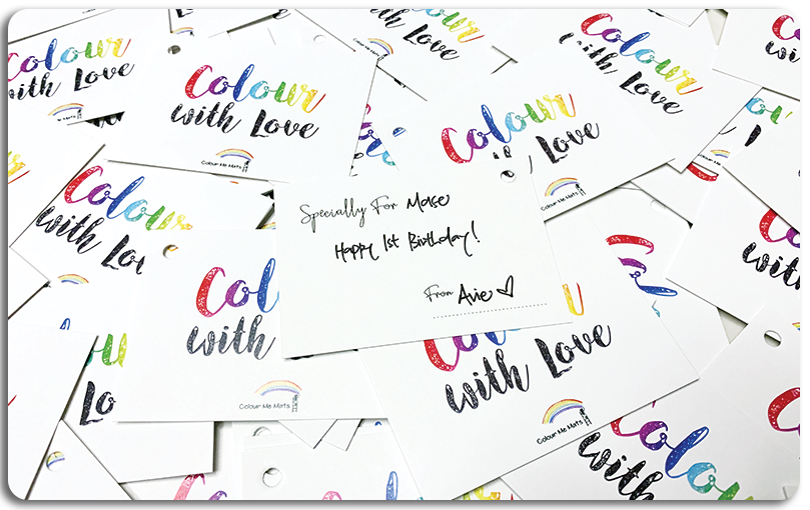 Colour
with Love
Colour
with Love
Colour Me Mats
Colour
with Love
Colour
with Love
Colour
Love
Colour Me Mats
Colour
with Lov
Specially For Mase
Happy 1st Birthday!
From Avie
Col
with
Colour Me Mats
with Love
Colour Me Mats
Lo
Colour
with Love